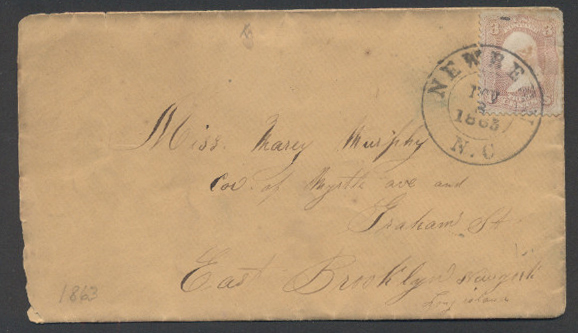 3 3
NEWBE
2
1865
N.C
Miss. Marey Murphy
Cor. of Myrtle ave and
Graham St
East Brooklyn Newyork
Long island
1863